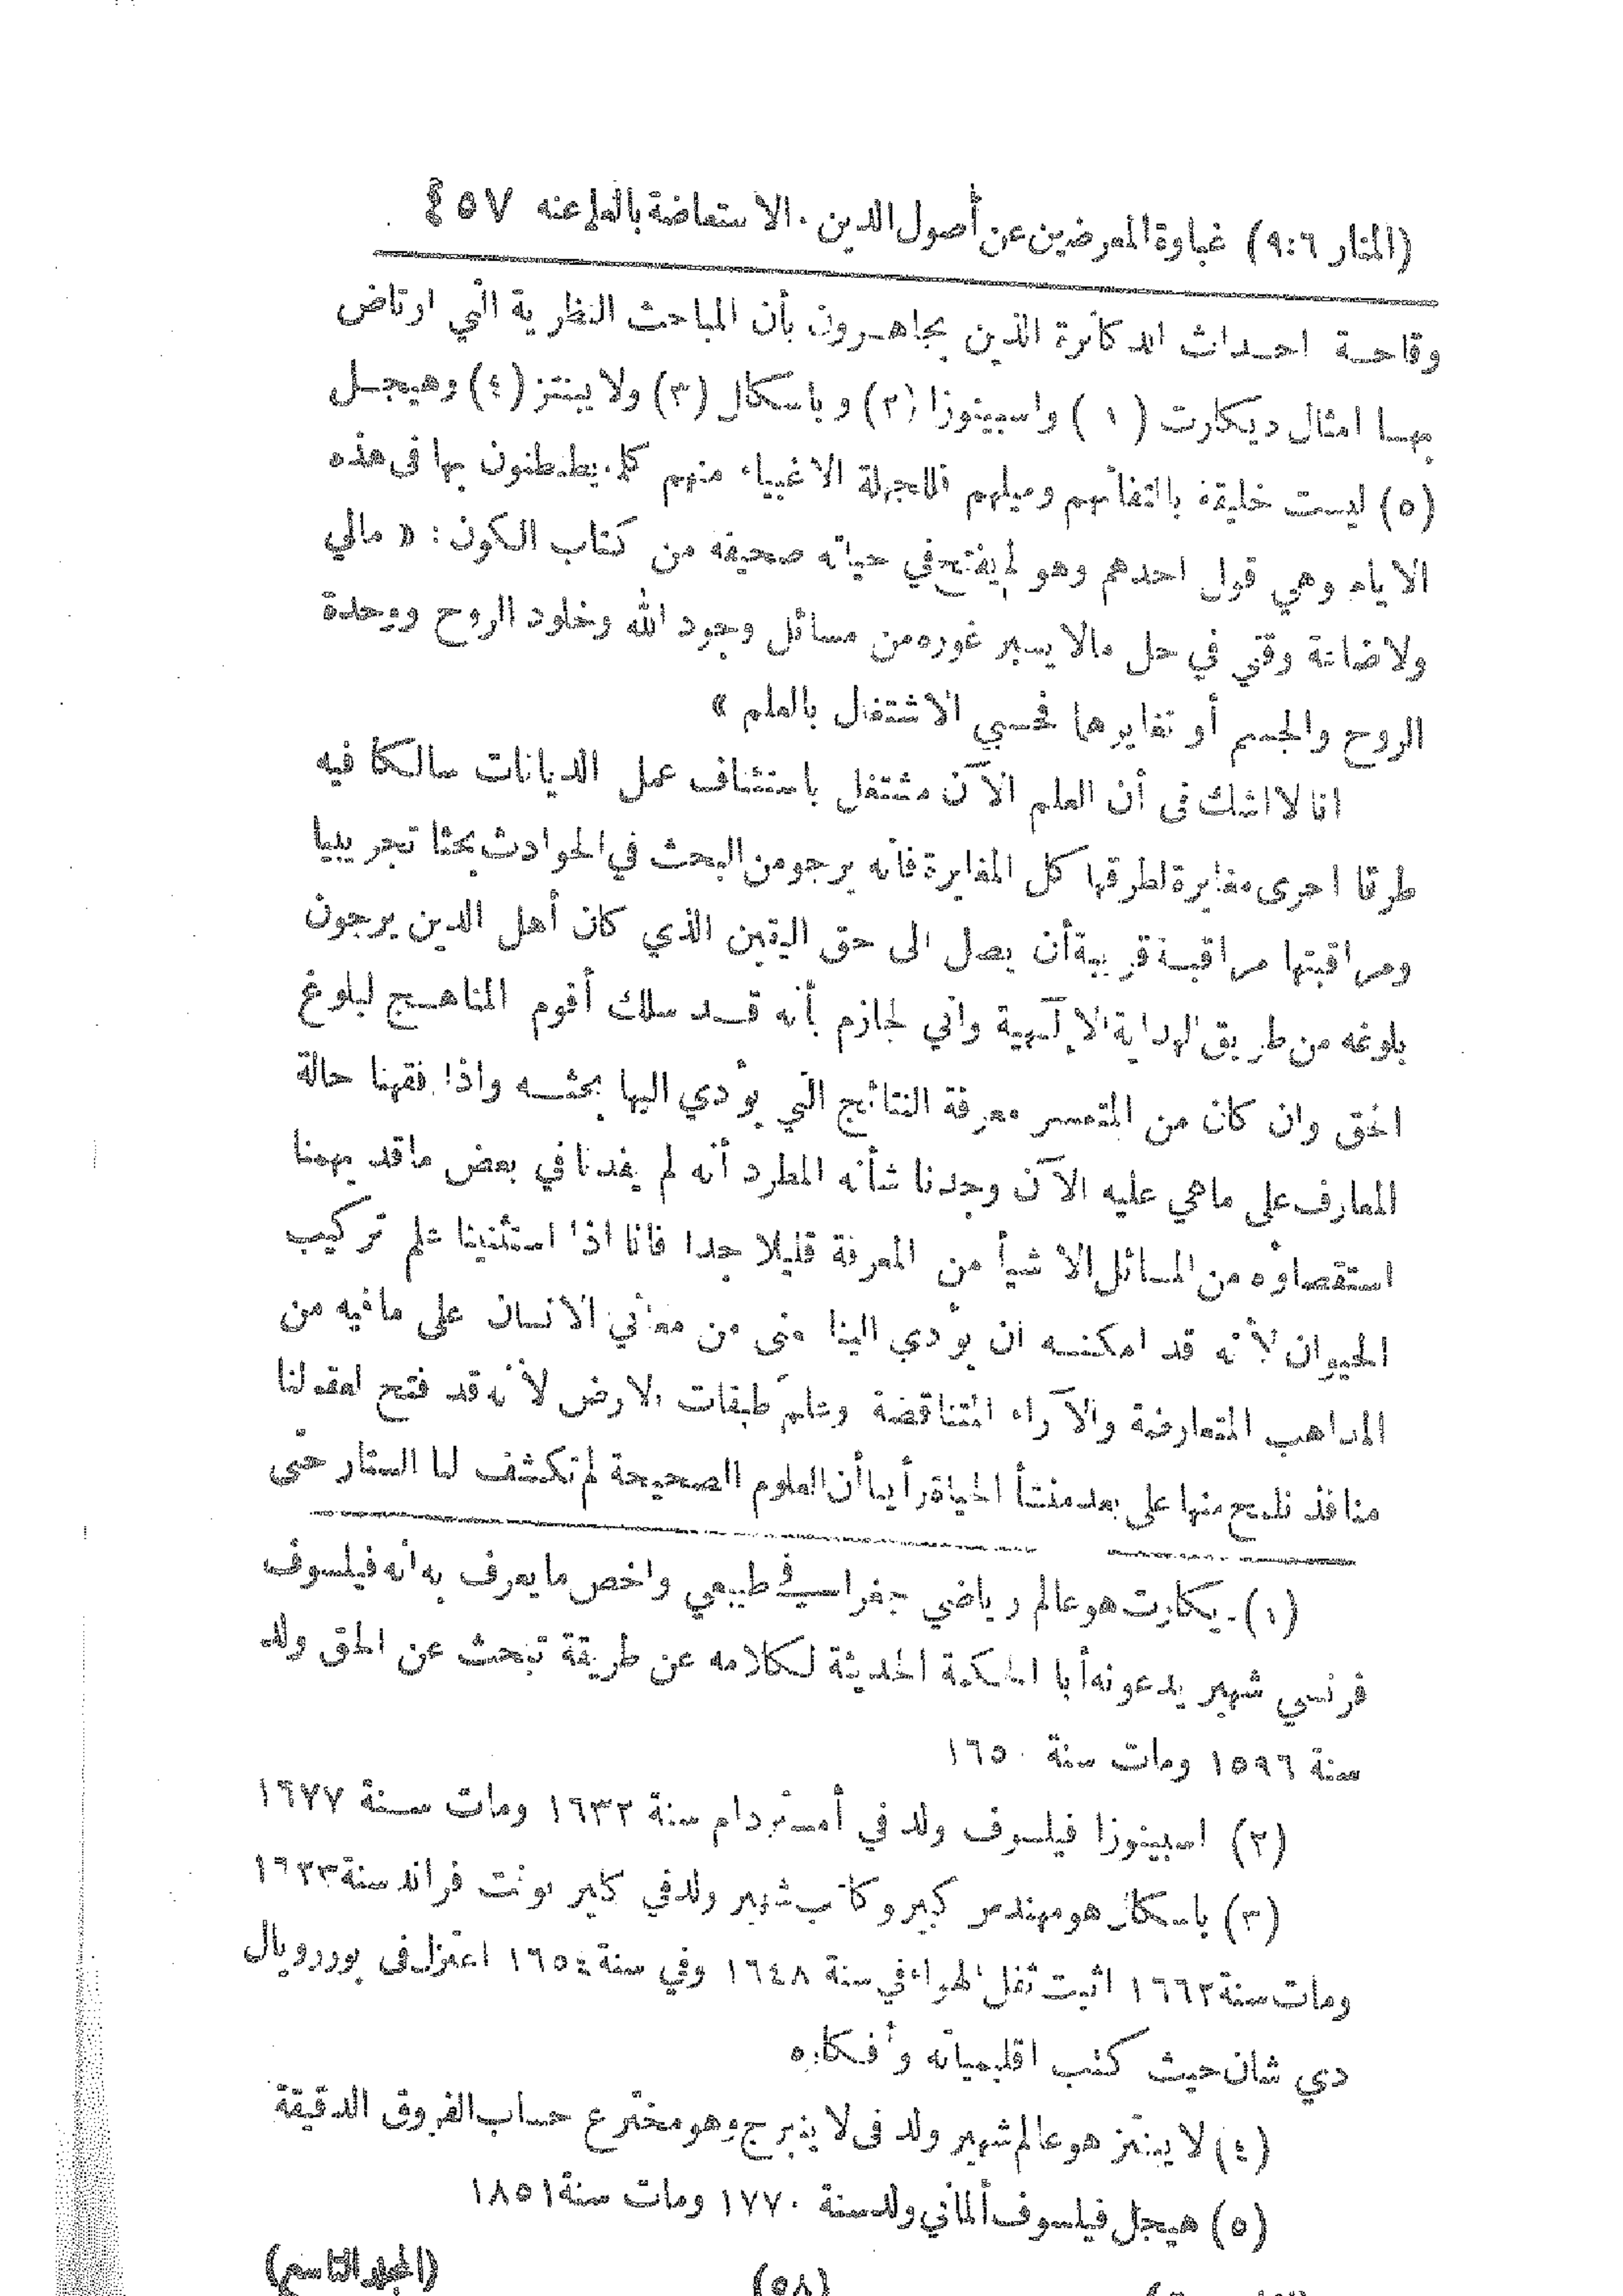 (المنار ٩:٦) غباوة المعرضين عن أصول الدين. الاستعاضة بالعلم عنه ٤٥٧
وقاحة احداث الدكاترة الذين يجاهرون بأن المباحث النظرية التي ارتاض
بها امثال ديكارت (١) واسبينوزا (٢) وباسكال (٣) ولايبنتز (٤) وهيجل
(٥) ليست خليقة بالتفاتهم وميلهم فللجهلة الاغبياء منهم كلمة يطنطنون بها فى هذه
الايام وهي قول احدهم وهو لم يفتح في حياته صحيفة من كتاب الكون: « مالي
ولاضاعة وقتي في حل مالا يسبر غوره من مسائل وجود الله وخلود الروح ووحدة
الروح والجسم أو تغايرهما فحسبي الاشتغال بالعلم »
انا لا اشك فى أن العلم الآن مشتغل باستئناف عمل الديانات سالكا فيه
طرقا اخرى مغايرة لطرقها كل المغايرة فانه يرجو من البحث في الحوادث بحثا تجريبيا
ومراقبتها مراقبة قريبة أن يصل الى حق اليقين الذي كان أهل الدين يرجون
بلوغه من طريق الهداية الإلهية واني لجازم بأنه قد سلك أقوم المناهج لبلوغ
الحق وان كان من المتعسر معرفة النتائج التي يؤدي اليها بحثه واذا فقهنا حالة
المعارف على ماهي عليه الآن وجدنا شأنه المطرد أنه لم يفدنا في بعض ماقد يهمنا
استقصاؤه من المسائل الا شيأ من المعرفة قليلا جدا فانا اذا استثنينا علم تركيب
الحيوان لأنه قد امكنه ان يؤدي الينا معنى من معاني الانسان على مافيه من
المذاهب المتعارضة والآراء المتناقضة وعلم طبقات الارض لأنه قد فتح لعقولنا
منافذ نلمح منها على بعد منشأ الحياة رأينا أن العلوم الصحيحة لم تكشف لنا الستار حتى
(١) ديكارت هو عالم رياضي جغرافي طبيعي واخص ما يعرف به انه فيلسوف
فرنسي شهير يدعونه أبا الحكمة الحديثة لكلامه عن طريقة تبحث عن الحق ولد
سنة ١٥٩٦ ومات سنة ١٦٥٠
(٢) اسبينوزا فيلسوف ولد في أمستردام سنة ١٦٣٢ ومات سنة ١٦٧٧
(٣) باسكال هو مهندس كبير وكاتب شهير ولد في كلير مونت فراند سنة ١٦٢٣
ومات سنة ١٦٦٢ اثبت ثقل الهواء في سنة ١٦٤٨ وفي سنة ١٦٥٤ اعتزل فى بوررويال
دي شان حيث كتب اقليمياته وأفكاره
(٤) لايبنتز هو عالم شهير ولد فى لايبزج وهو مخترع حساب الفروق الدقيقة
(٥) هيجل فيلسوف ألماني ولد سنة ١٧٧٠ ومات سنة ١٨٥١
(٥٨) (المجلد التاسع)